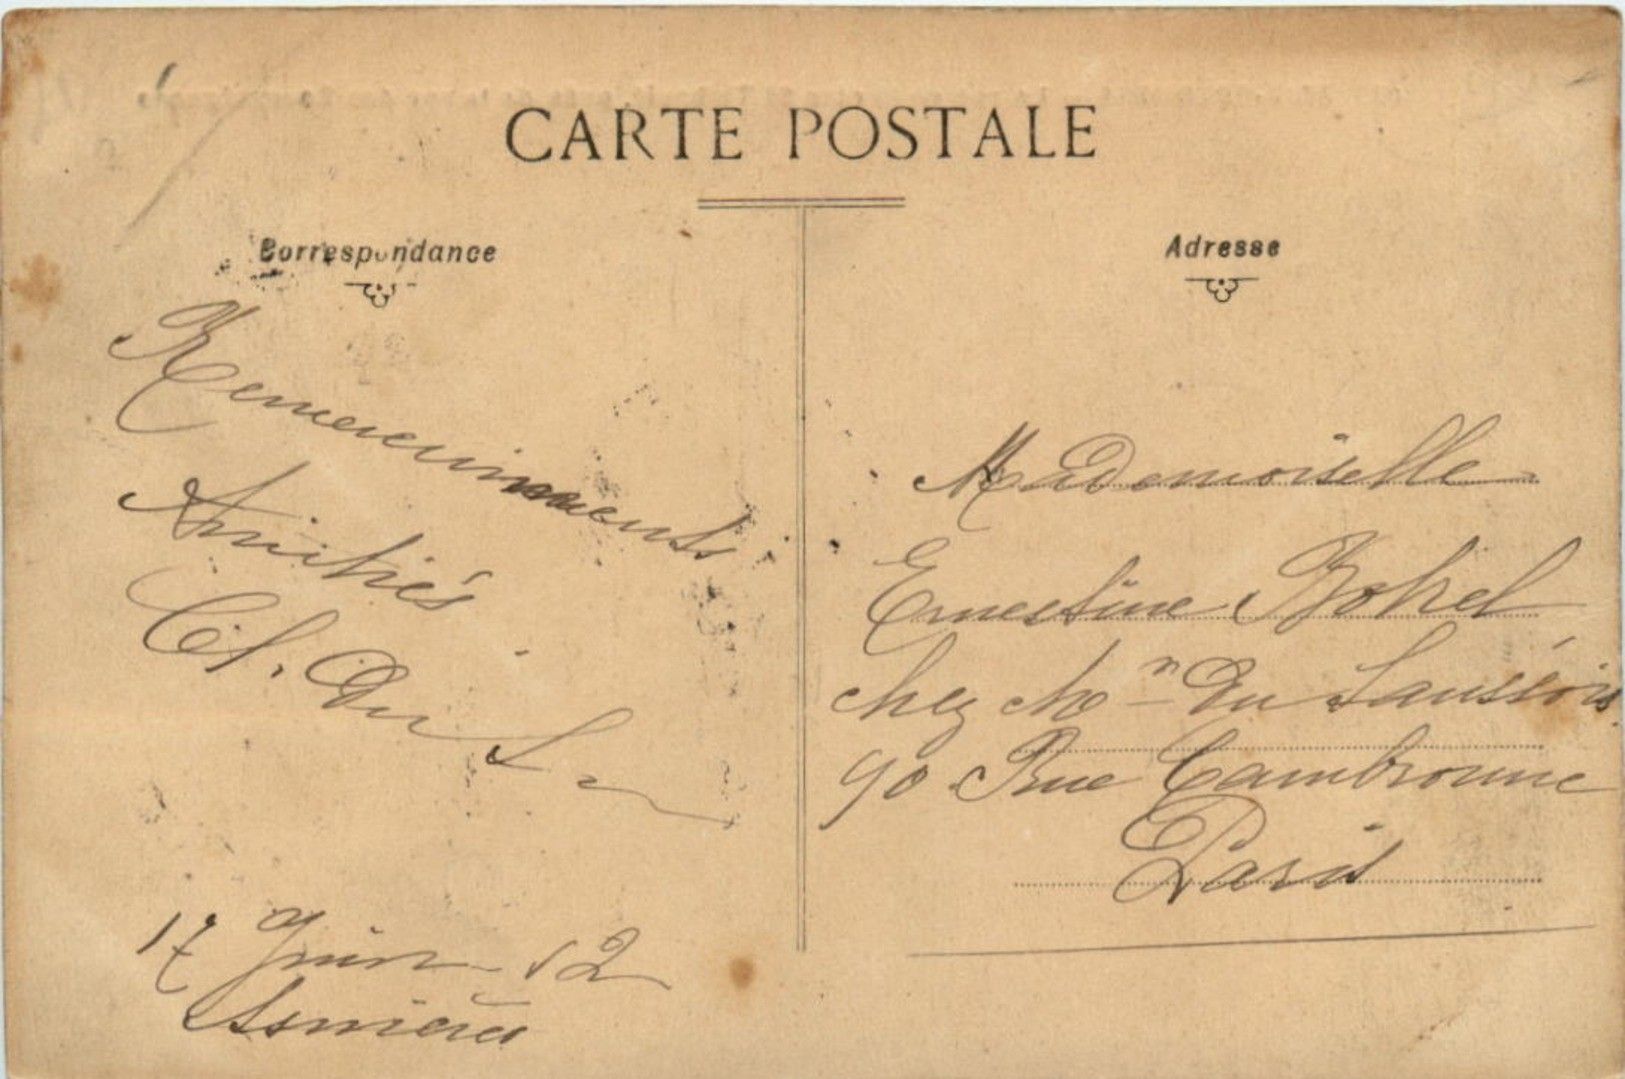 CARTE POSTALE
Correspondance
Remerciements
Amitiés
Cl. Du S
17 Juin 12
Asnières
Adresse
Mademoiselle
Ernestine
chez Mr Du
90 Rue Cambronne
Paris